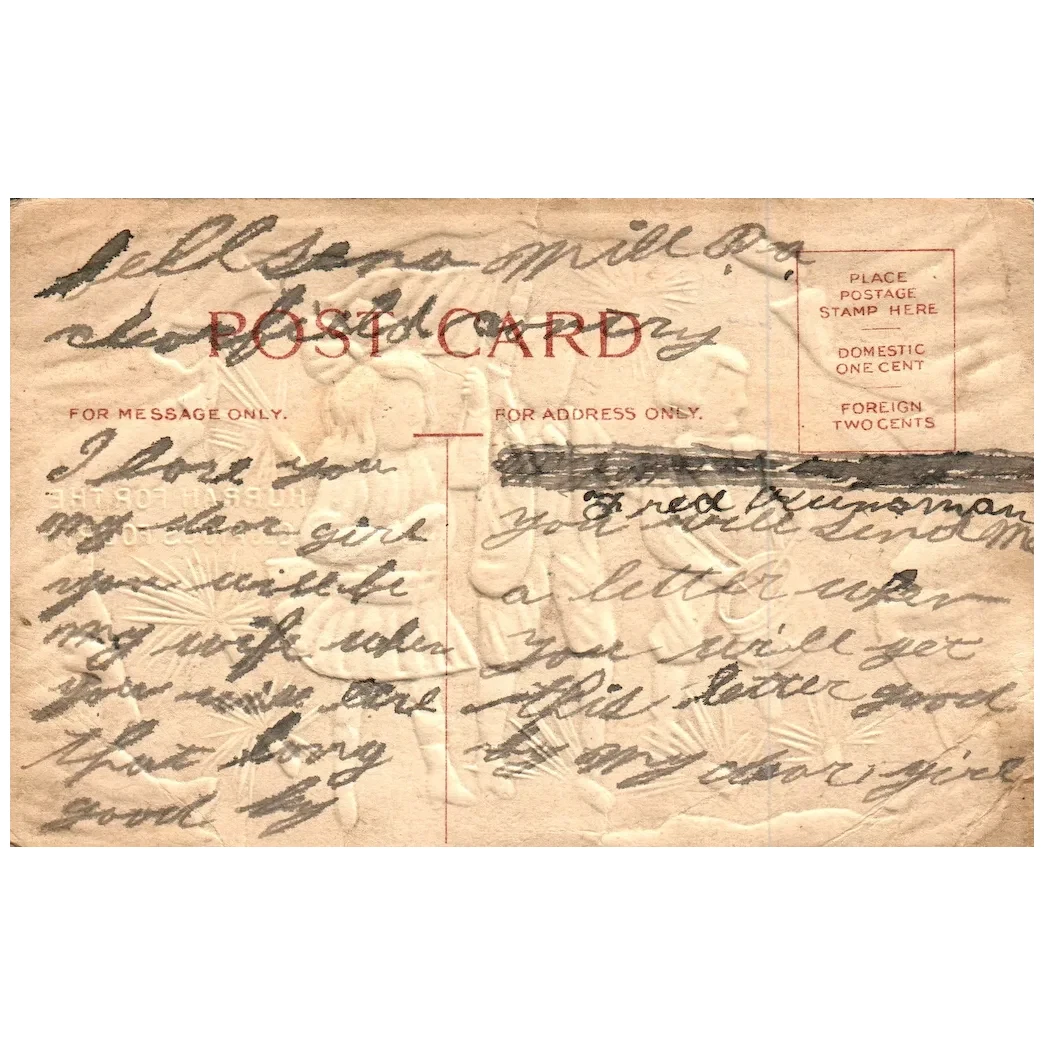 Mill Pa
POST CARD
PLACE
POSTAGE
STAMP HERE
DOMESTIC
ONE CENT
FOREIGN
TWO CENTS
FOR MESSAGE ONLY.
I love you
my dear girl
you will be
my wife when
you will
that long
good by
FOR ADDRESS ONLY.
Fred Kunsman
you will send Me
a letter when
you will get
this letter good
by my dear girl
HURRAH FOR THE